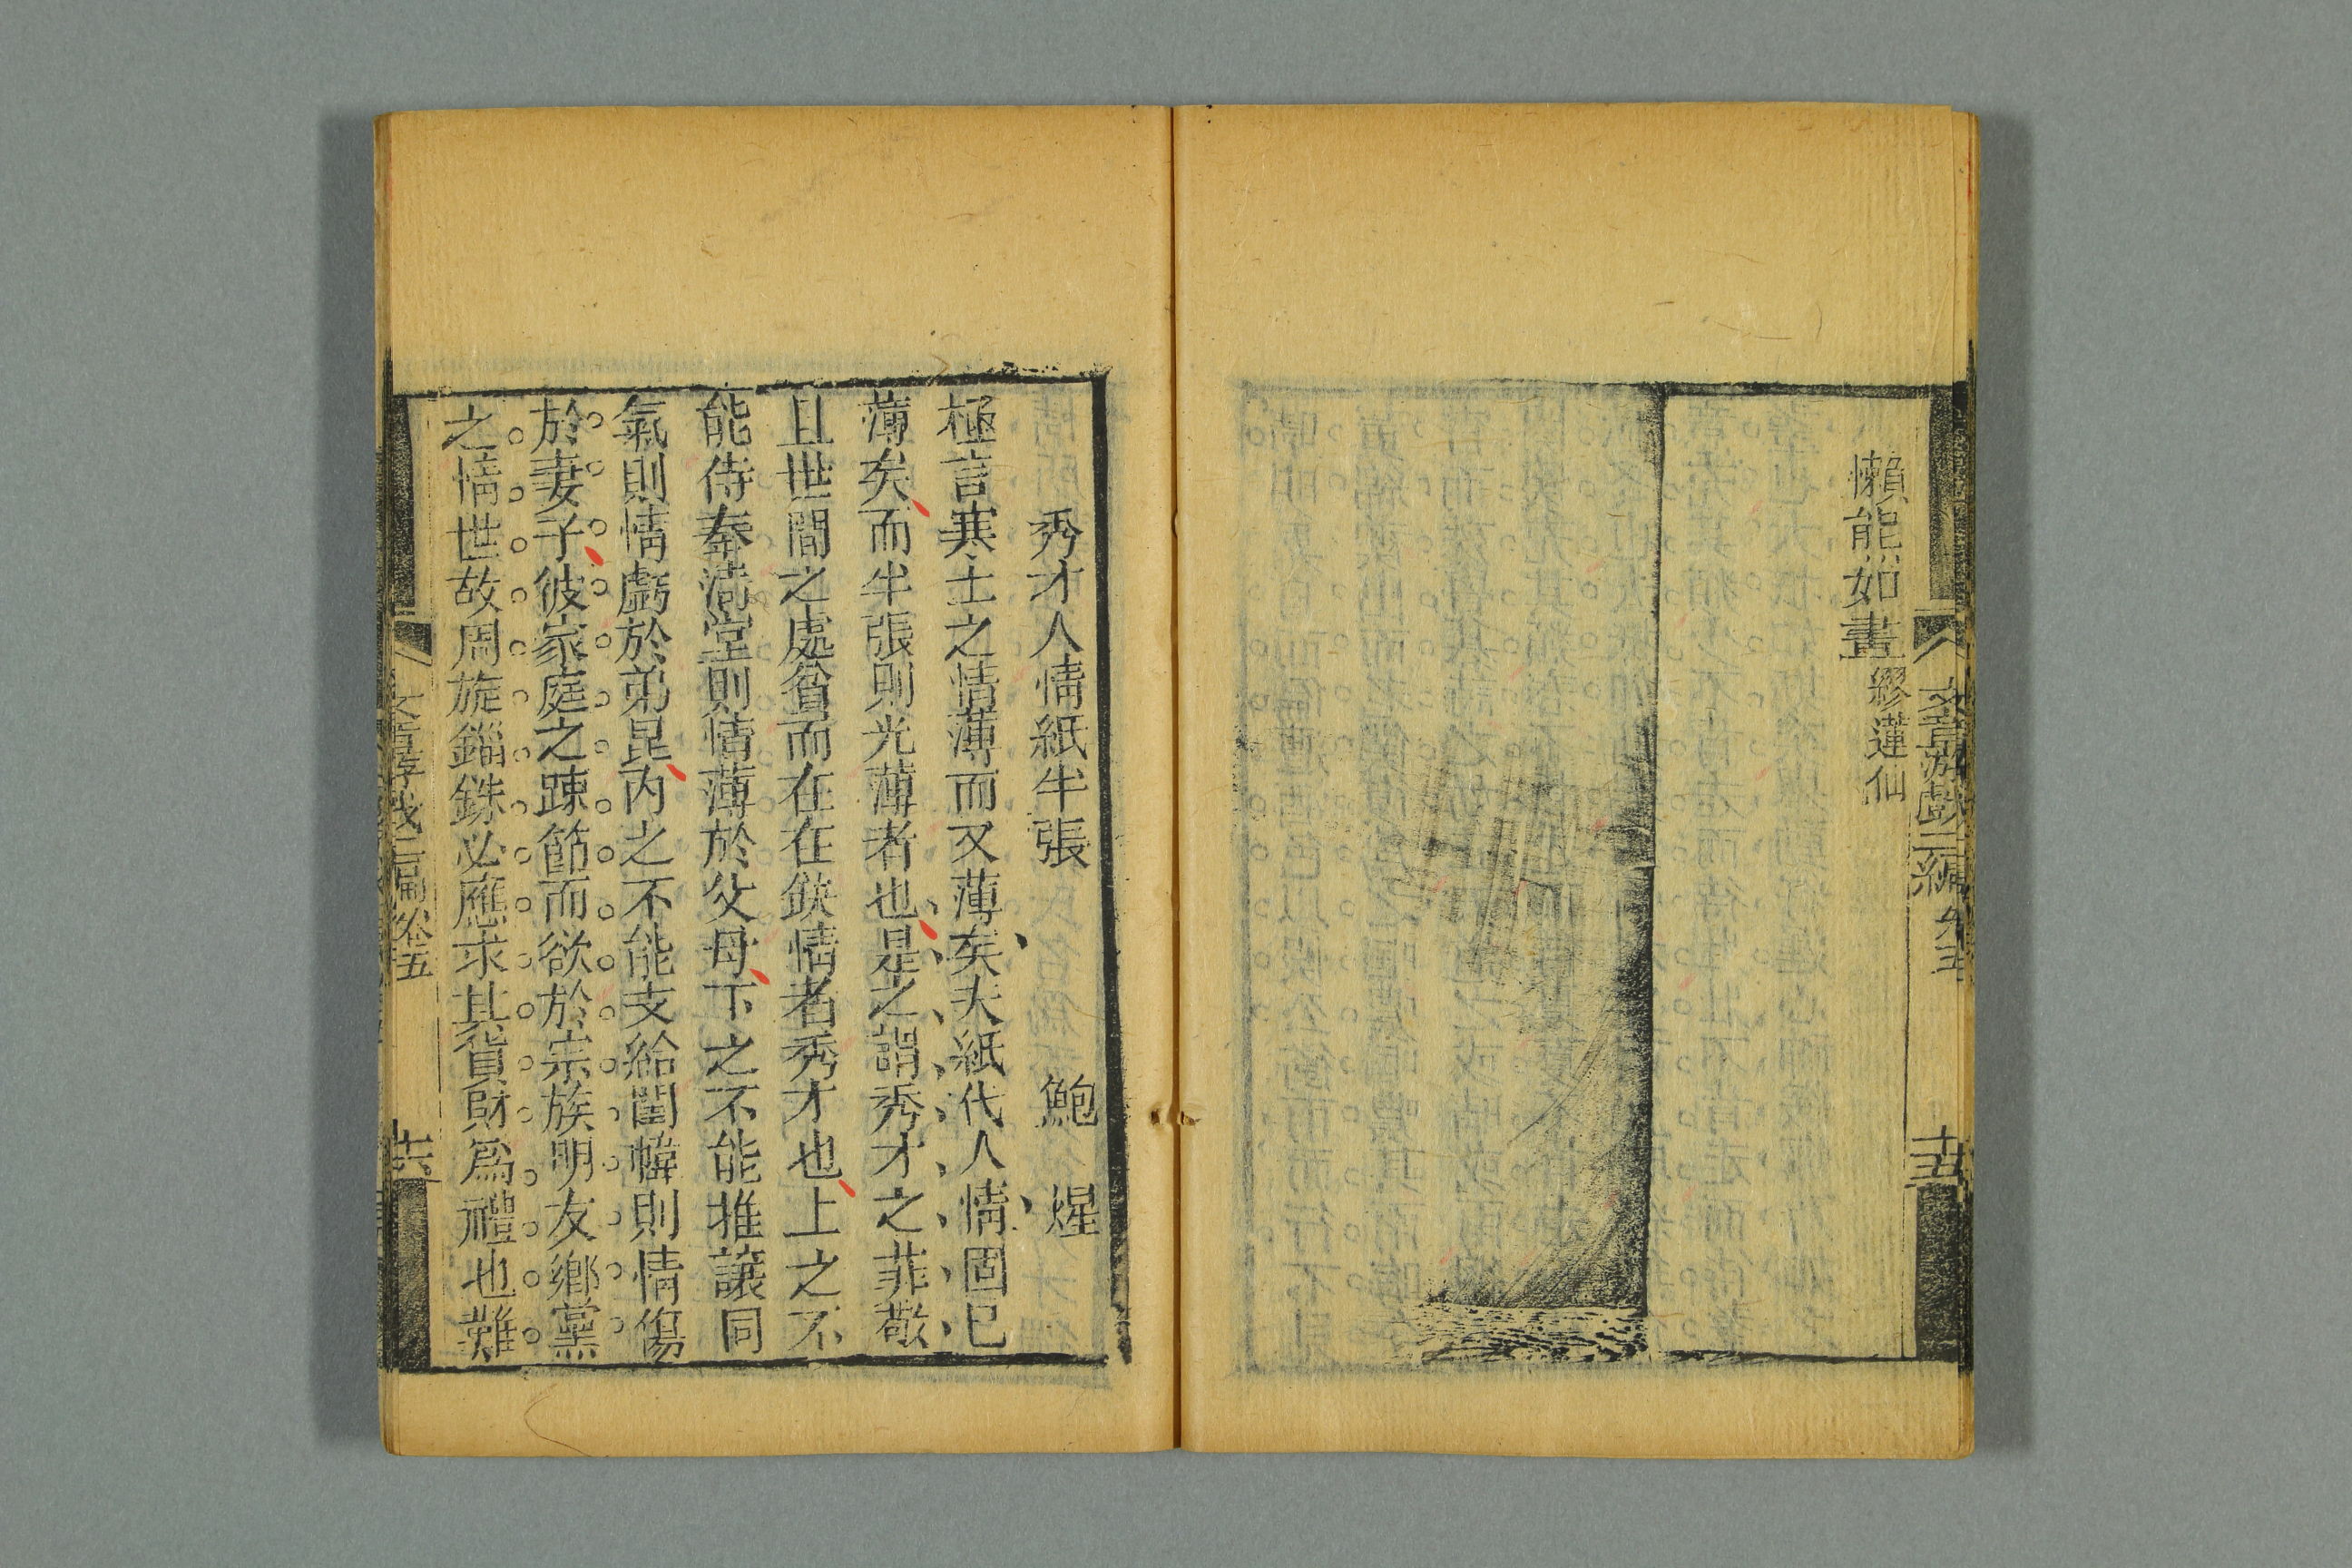 文章游戲二編 卷五 十五
懶能如畫 繆蓮仙
秀才人情紙半張 鮑煋
極言寒士之情薄而又薄矣夫紙代人情固已
薄矣而半張則光薄者也是之謂秀才之菲敬
且世間之處貧而在在缺情者秀才也上之不
能侍奉滿堂則情薄於父母下之不能推讓同
氣則情虧於弟昆內之不能支給閨幃則情傷
於妻子彼家庭之踈節而欲於宗族朋友鄉黨
之情世故周旋錙銖必應求其貨財爲禮也難
文章游戲二編 卷五 十六